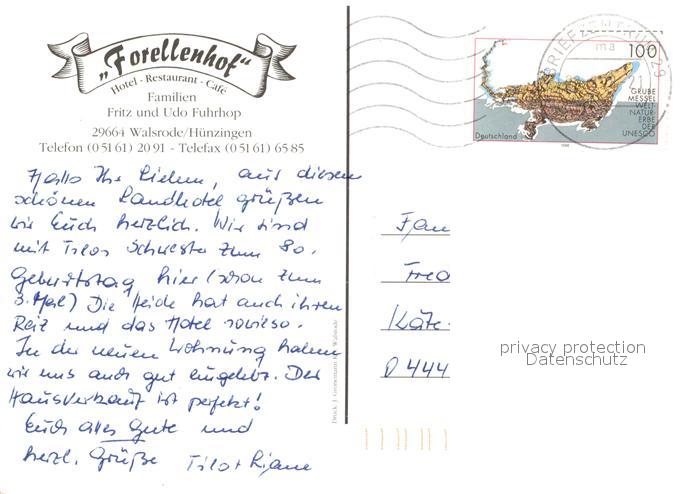 „Forellenhof“
Hotel - Restaurant - Café
Familien
Fritz und Udo Fuhrhop
29664 Walsrode/Hünzingen
Telefon (0 51 61) 20 91 - Telefax (0 51 61) 65 85
Hallo Ihr Lieben, aus diesem
schönen Landhotel grüßen
wir Euch herzlich. Wir sind
mit Tilos Schwester zum 80.
Geburtstag hier (schon zum
3. Mal) Die Heide hat auch ihren
Reiz und das Hotel sowieso.
In der neuen Wohnung haben
wir uns auch gut eingelebt. Der
Hausverkauf ist perfekt!
Euch alles Gute und
herzl. Grüße Tilo + Liane
BRIEFZENTRUM 29
ma
100
GRUBE
MESSEL
WELT-
NATUR-
ERBE
DER
UNESCO
Deutschland
1998
Fam
Fred
Käte
D 444
privacy protection
Datenschutz
Walsrode